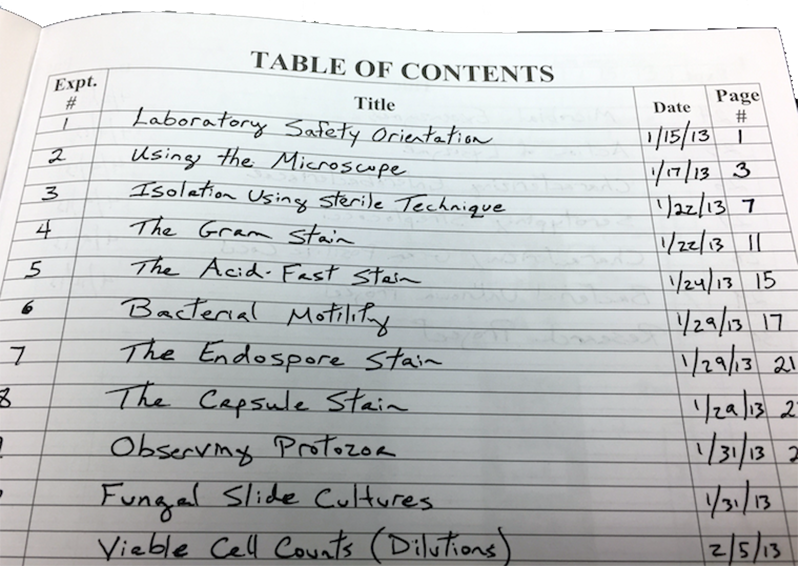 TABLE OF CONTENTS
Expt. # Title Date Page #
1 Laboratory Safety Orientation 1/15/13 1
2 Using the Microscope 1/17/13 3
3 Isolation Using Sterile Technique 1/22/13 7
4 The Gram Stain 1/22/13 11
5 The Acid-Fast Stain 1/24/13 15
6 Bacterial Motility 1/29/13 17
7 The Endospore Stain 1/29/13 21
8 The Capsule Stain 1/29/13
Observing Protozoa 1/31/13
Fungal Slide Cultures 1/31/13
Viable Cell Counts (Dilutions) 2/5/13